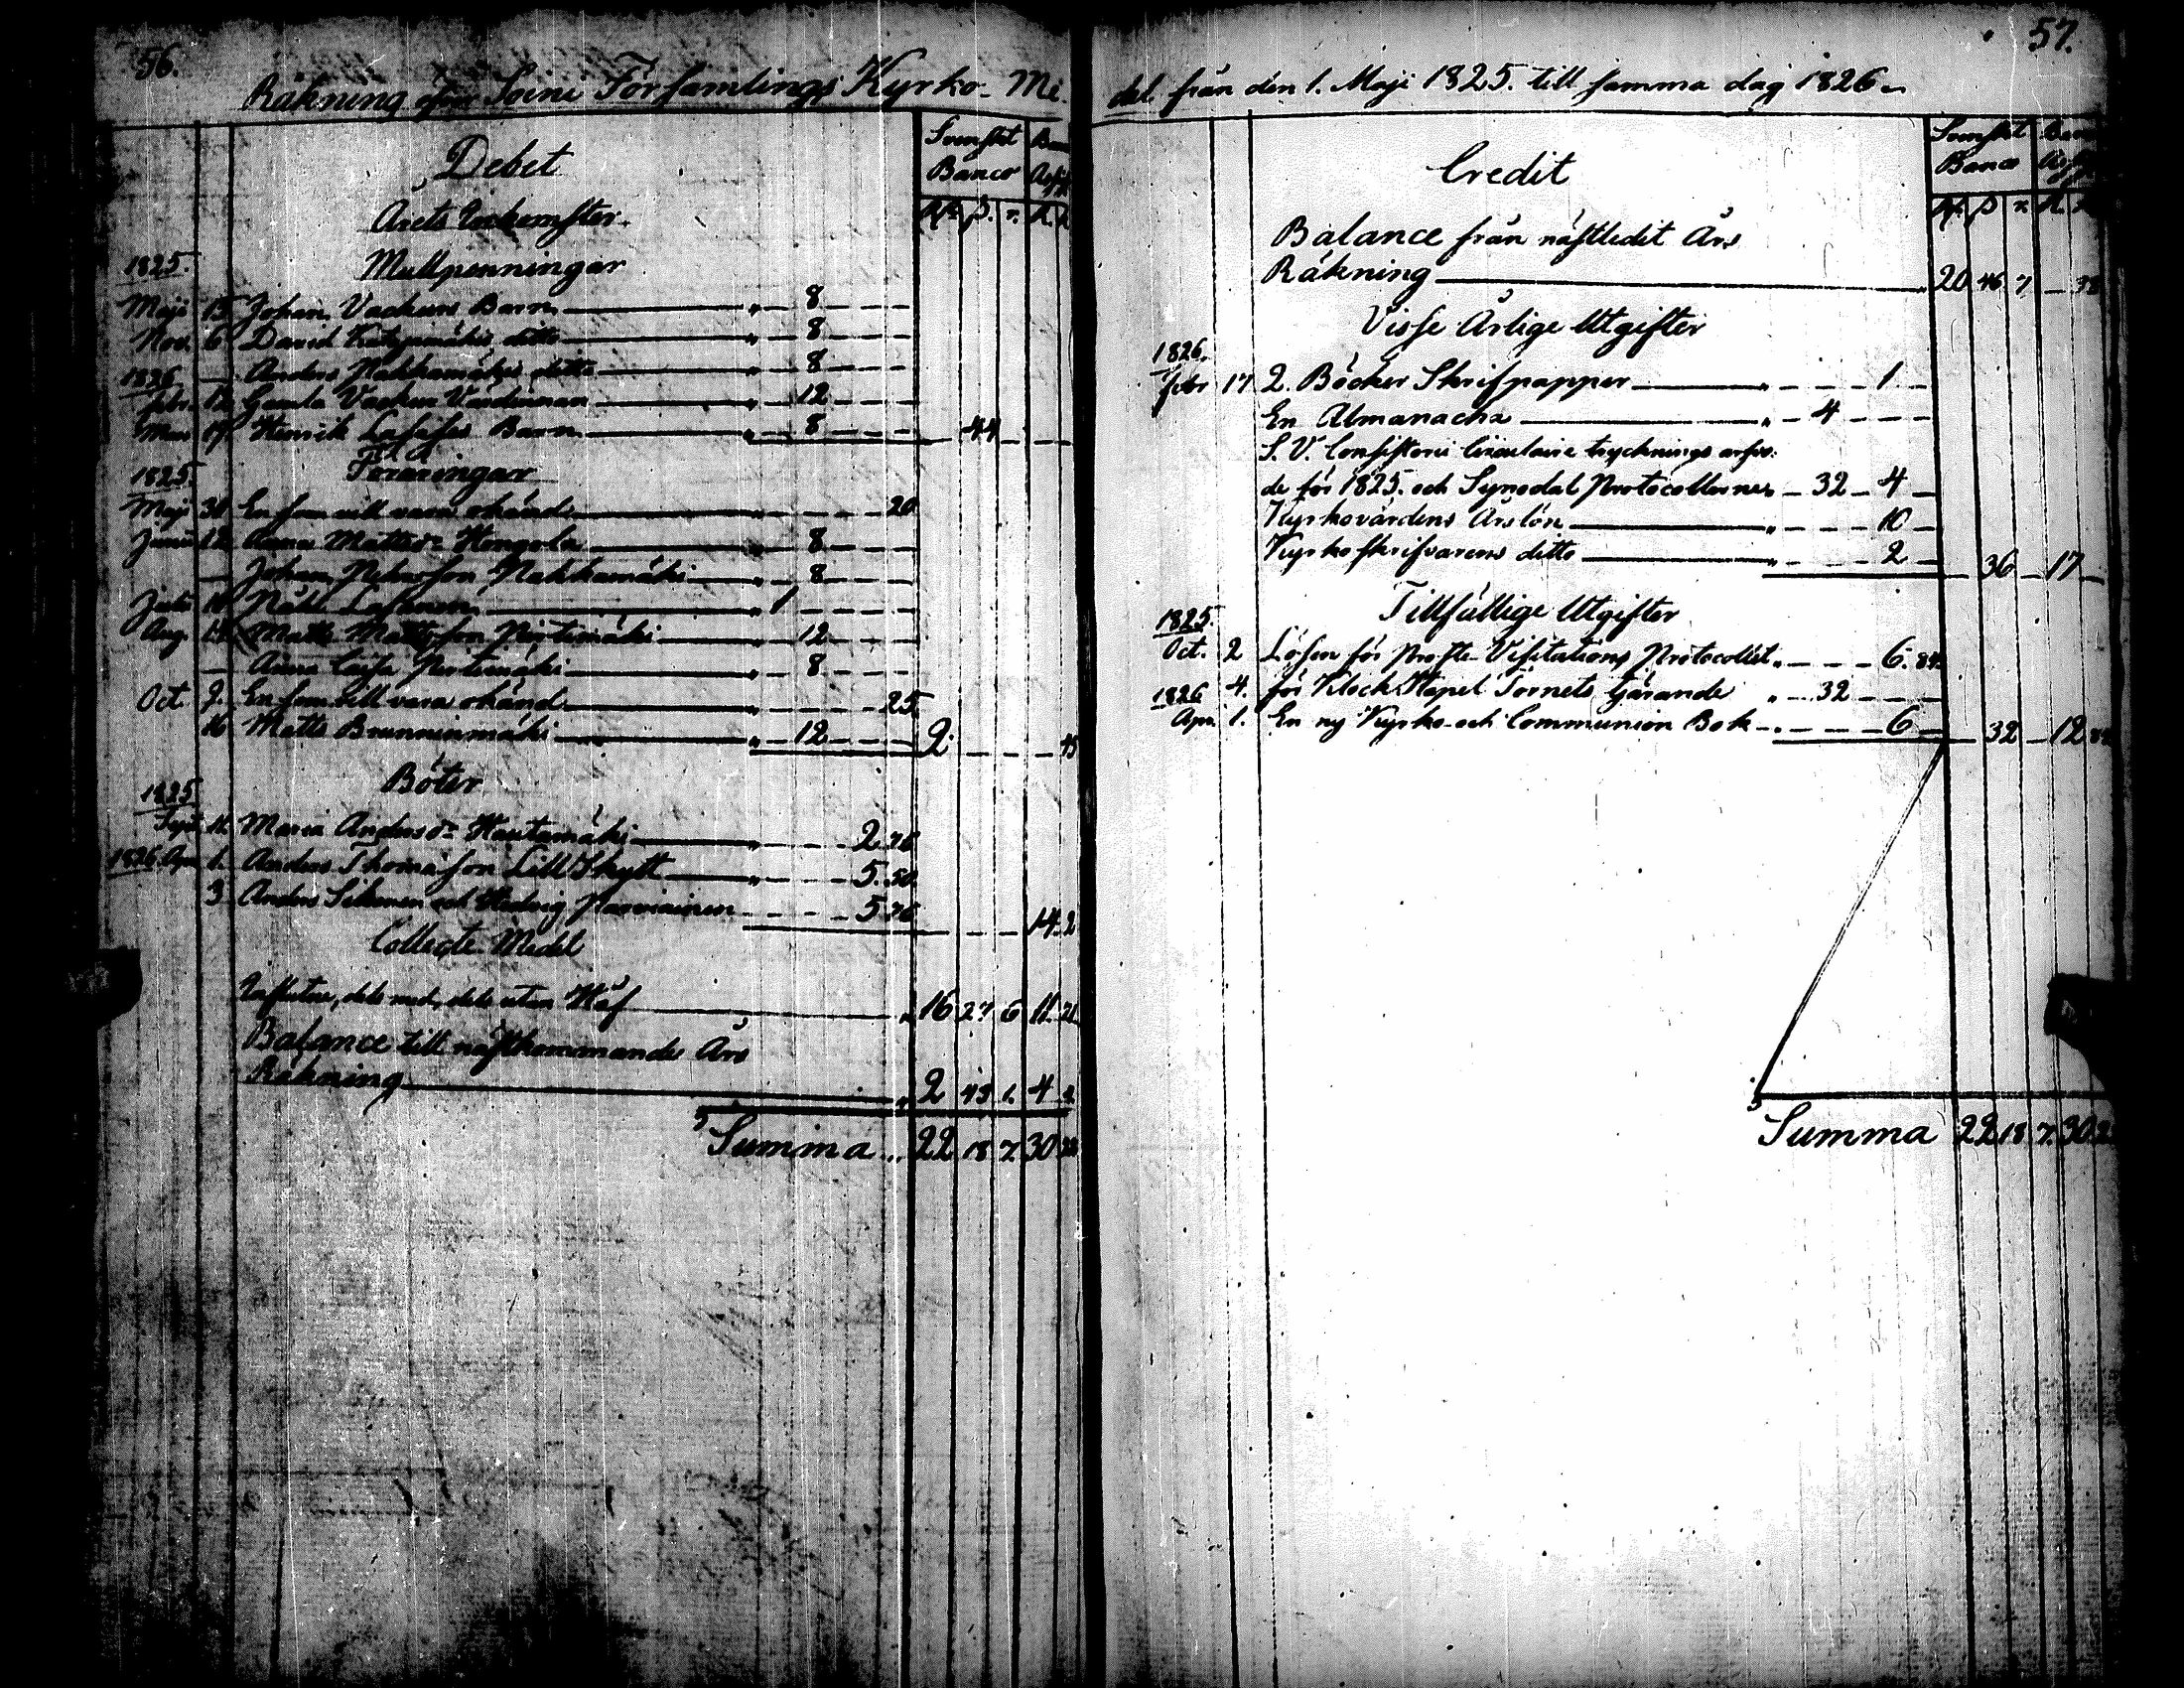 56.
Räkning öfver Soini Församlings Kyrko-Me-
Debet
Svenskt
Banco
Årets Inkomster
1825.
Mullpenningar
Maji 15 Johan Vaakuns Barn " 8
Nov. 6 David Katajamäkis ditto " 8
1826 Anders Hakkamäkis ditto " 8
Febr. 12 Gamla Vaakun Värdinnan " 12
Mars 17 Henrik Barn " 8 44
1825.
Föräringar
Maji 30 En som vill vara okänd " 20
Junii 12 Anna Mattsdr Hongola " 8
Johan Nakkamäki " 8
10 " 1
Aug. 14 Matts Mattsson Pirttimäki " 12
Anna Caisa Pirttimäki " 8
Oct 9. En som vill vara okänd 25.
16 Matts Brunninmäki " 12 2 45
Böter
1825
Sept 11. Maria Andersdr Hautamäki " 2.76
1826 Apr. 1. Anders Thomasson Lill Skytt " 5.50
3 Anders och Hedvig 5.76
14. 2
Collecte-Medel
Influtne, dels med, dels utan Håf " 16 27 6 11. 21.
Balance till nästkommande Års
Räkning " 2 43 1. 4
Summa 22 18 7. 30
57.
del från den 1. Maji 1825. till samma dag 1826.
Credit
Svenskt
Banco
Balance från nästledit Års
Räkning " 20 46 7
Visse Årlige Utgifter
1826.
Febr 17 2. Böcker Skrifpapper " 1
En Almanacha " 4
S. V. Consistorii Circulaire trycknings arfvo-
de för 1825. och Synodal Protocollerne " 32 4
Kyrkovärdens Årslön " 10
Kyrkoskrifvarens ditto " 2
36 17
Tillfällige Utgifter
1825.
Oct. 2 Lösen för Prosts Visitations Protocollet " 6. 84
4. för Klock Stapel Tornets tjärande " 32
1826
Apr. 1. En ny Kyrko- och Communion Bok " 6
32 12 84
Summa 22 18 7. 30